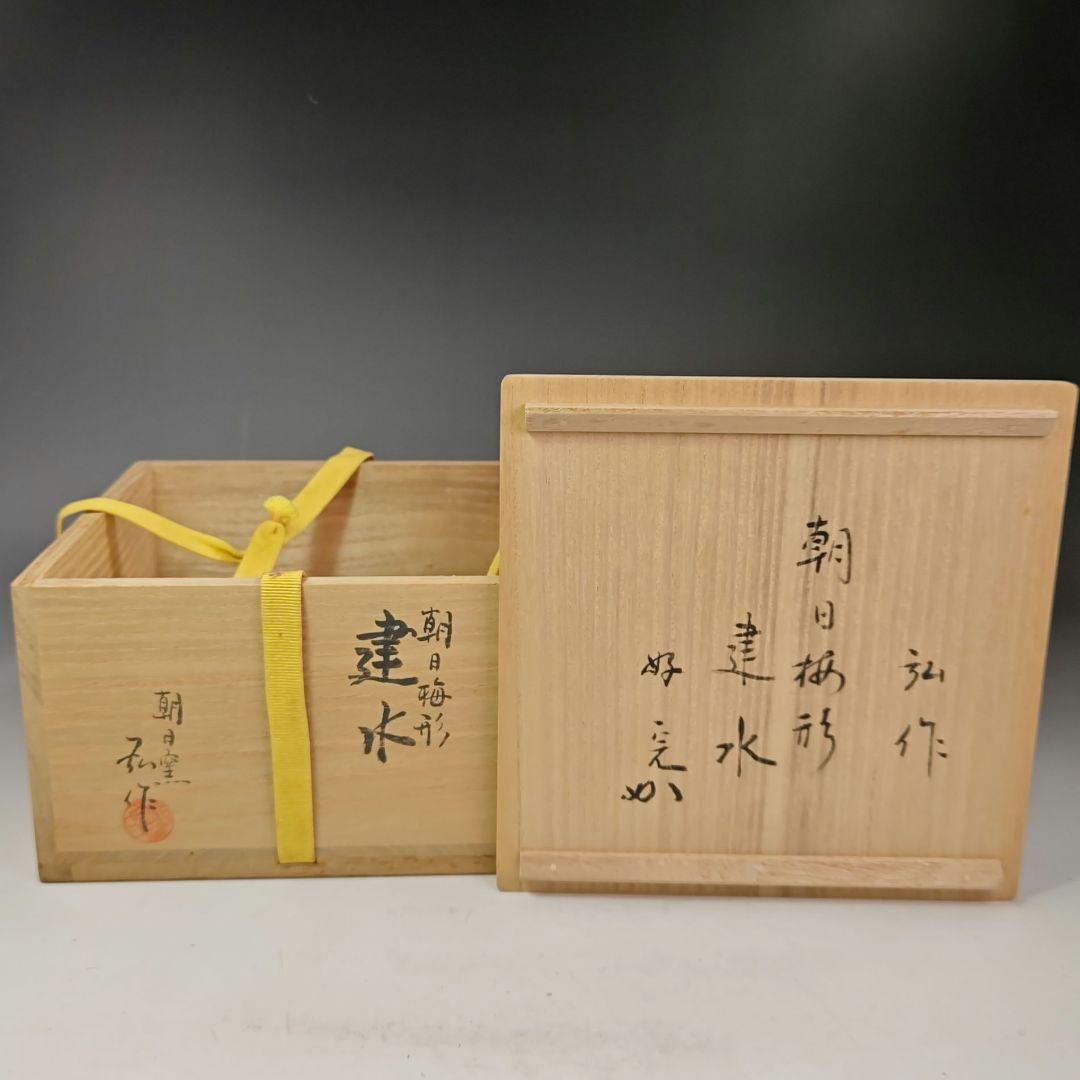 朝日梅形
建水
朝日窯
弘作
弘作
朝日梅形
建水
好